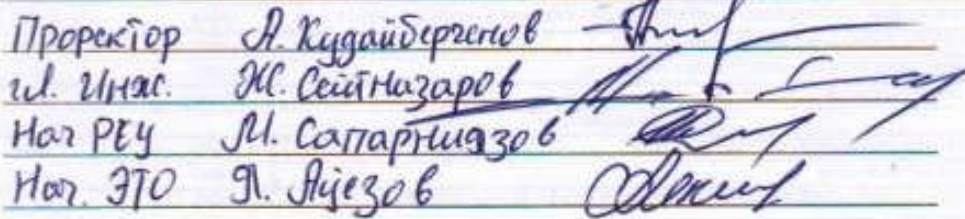 Проректор А. Кудайбергенов
гл. Инж. Ж. Сейтназаров
Нач РЕУ М. Сапарниязов
Нач. ЭТО Я. Ауезов